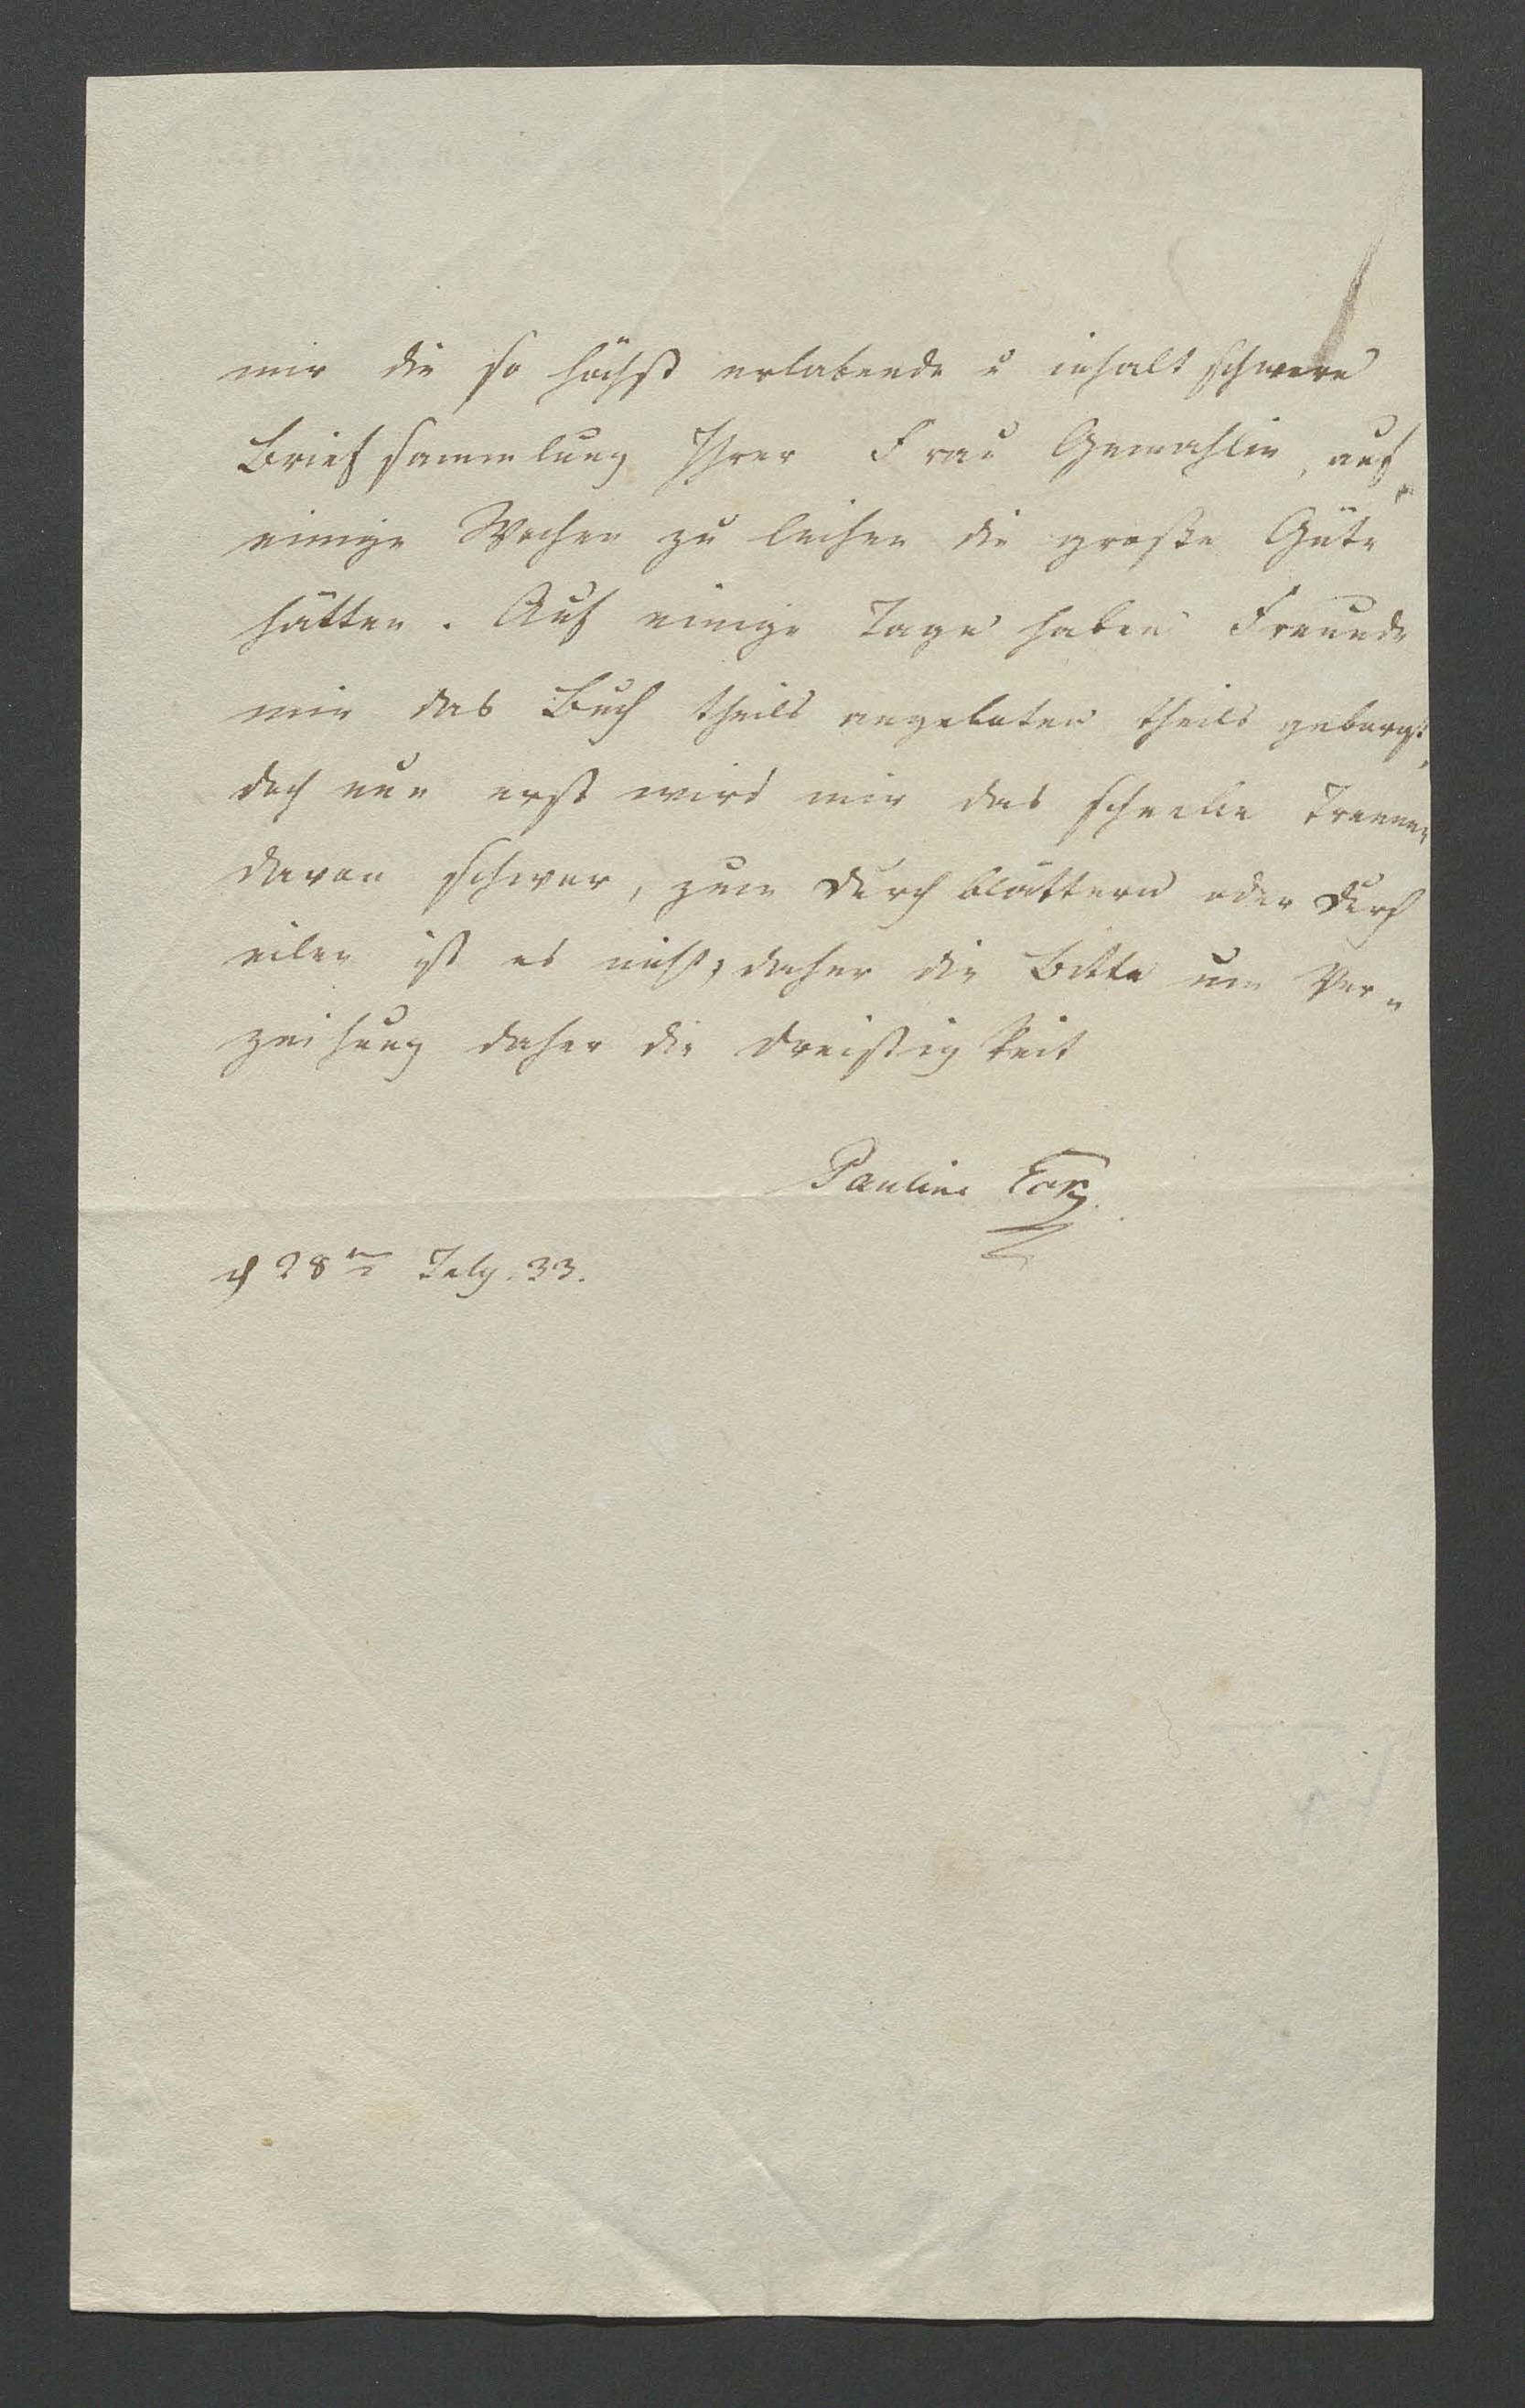 mir die so höchst erlabende u inhalt schwere
Briefsammlung Ihrer Frau Gemahlin, auf
einige Wochen zu leihen die große Güte
hätten. Auf einige Tage haben Freunde
mir das Buch theils angeboten theils geborgt,
doch nun erst wird mir das schnelle Trennen
davon schwer, zum durch blättern oder durch
eilen ist es nicht; daher die Bitte um Ver„
zeihung daher die Dreistigkeit
Pauline
28ten July. 33.